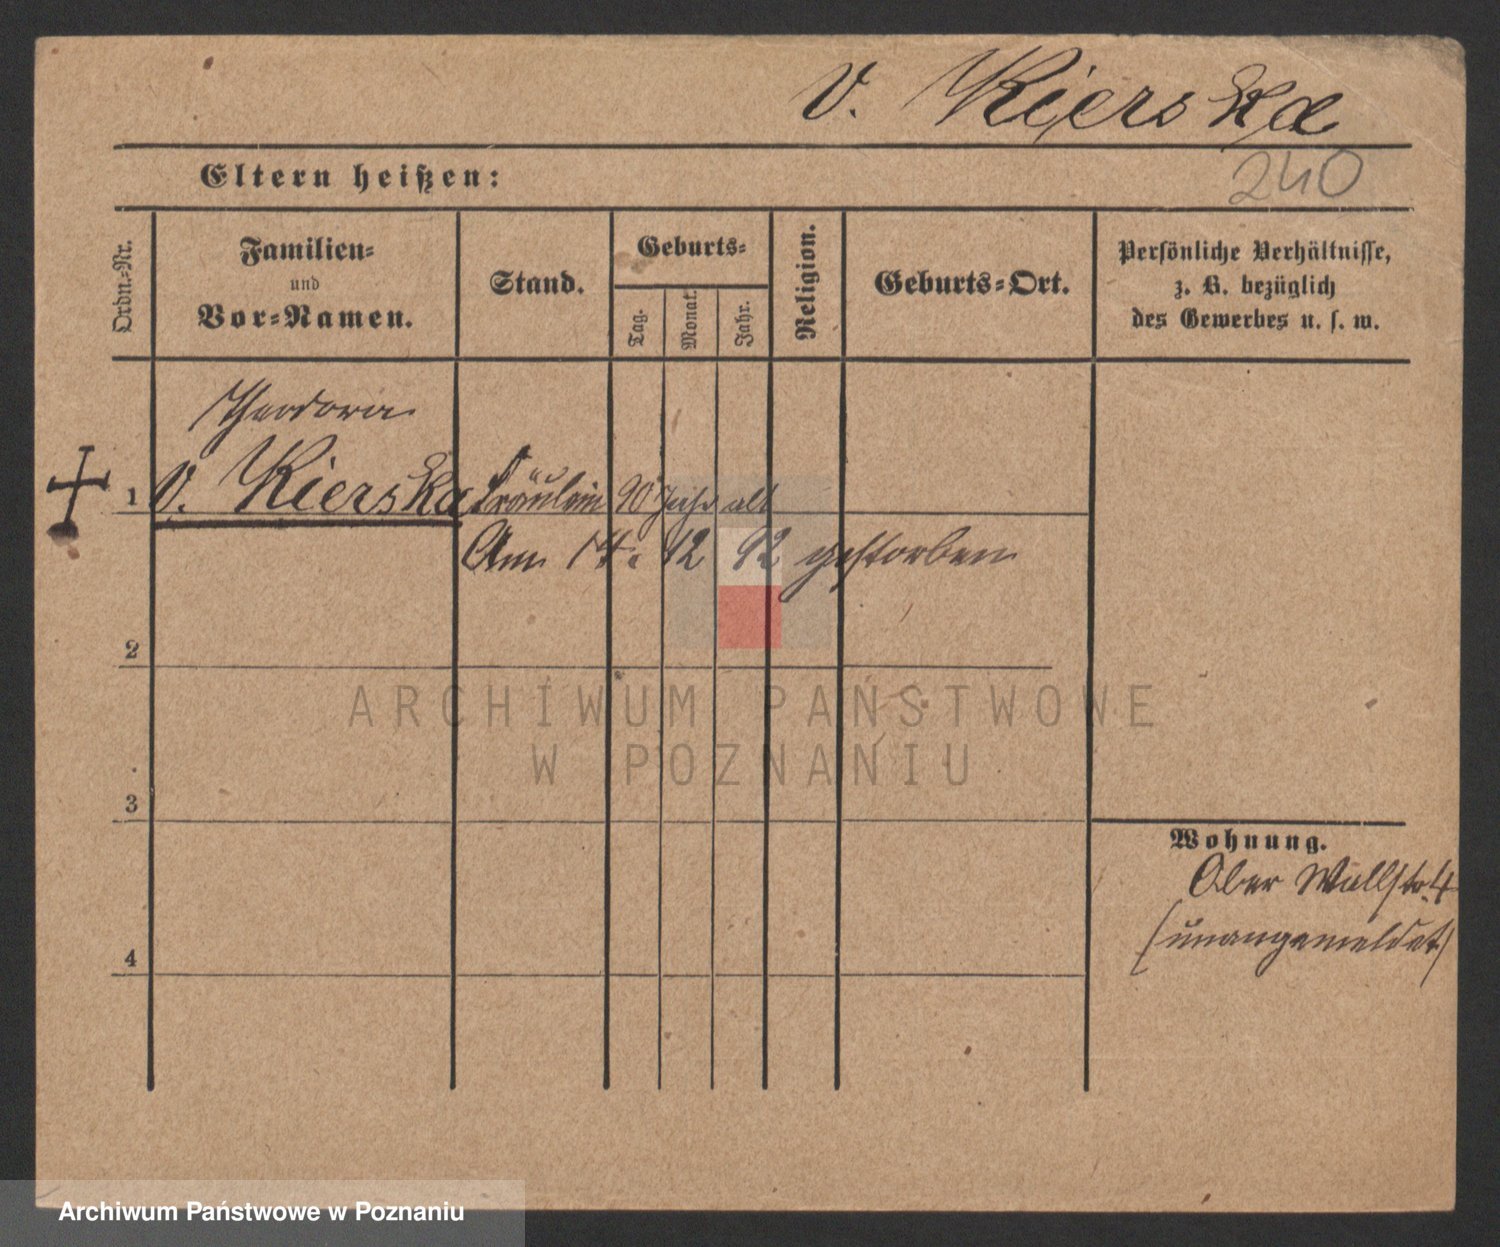 v. Kierska
240
Eltern heißen:
Ordn.-Nr.
Familien-
und
Vor-Namen.
Stand.
Geburts-
Tag.
Monat.
Jahr.
Religion.
Geburts-Ort.
Persönliche Verhältnisse,
z. B. bezüglich
des Gewerbes u. s. w.
Theodora
1 v. Kierska Fräulein 90 Jahr alt
Am 14. 12 92 gestorben
2
ARCHIWUM PAŃSTWOWE
W POZNANIU
3
Wohnung.
Ober Wallstr. 4
(unangemeldet)
4
Archiwum Państwowe w Poznaniu